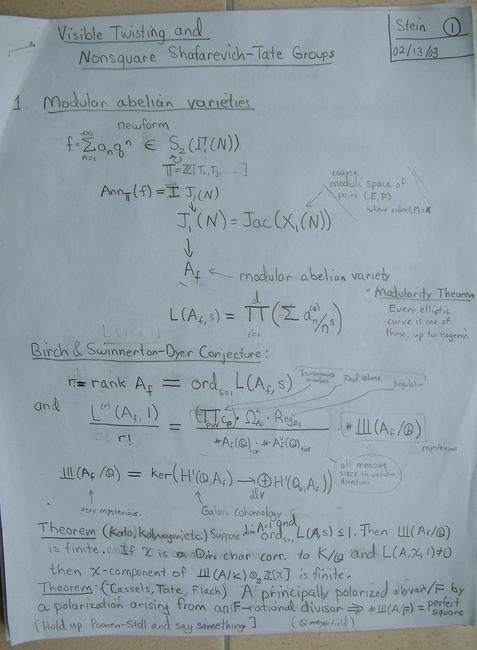 Visible Twisting and
Nonsquare Shafarevich-Tate Groups
Stein ①
02/13/03
1. Modular abelian varieties
newform
f = ∑_{n=1}^{∞} a_n q^n ∈ S_2(Γ_1(N))
𝕋 = ℤ[T_1, T_2, ...]
Ann_𝕋(f) = I J_1(N)
coarse
moduli space of
pairs (E, P)
where order(P) = N
J_1(N) = Jac(X_1(N))
↓
A_f ← modular abelian variety
Modularity Theorem
Every elliptic
curve is one of
these, up to isogeny.
L(A_f, s) = ∏_{i=1}^{d} (∑ a_n^{(i)}/n^s)
Birch & Swinnerton-Dyer Conjecture:
Tamagawa numbers
Real Volume
Regulator
r = rank A_f = ord_{s=1} L(A_f, s)
and L^{(r)}(A_f, 1)/r! = (∏_{p|N} c_p) · Ω_{A_f} · Reg_{A_f} / #A_f(ℚ)_{tor} · #A_f^∨(ℚ)_{tor} · #Ш(A_f/ℚ)
mysterious
Ш(A_f/ℚ) = ker(H¹(ℚ, A_f) → ⊕_{all v} H¹(ℚ_v, A_f))
all measure
sizes in various
directions
very mysterious.
Galois cohomology
Theorem (Kato, Kolyvagin, etc.) Suppose dim A=1 and ord_{s=1} L(A,s) ≤ 1. Then Ш(A_f/ℚ)
is finite. If χ is a Dir. char corr. to K/ℚ and L(A,χ,1)≠0
then χ-component of Ш(A/K)⊗_ℤ ℤ[χ] is finite.
Theorem: (Cassels, Tate, Flach) A principally polarized abvar/F by
a polarization arising from an F-rational divisor ⇒ #Ш(A/F) = perfect
square
[Hold up Poonen-Stoll and say something]